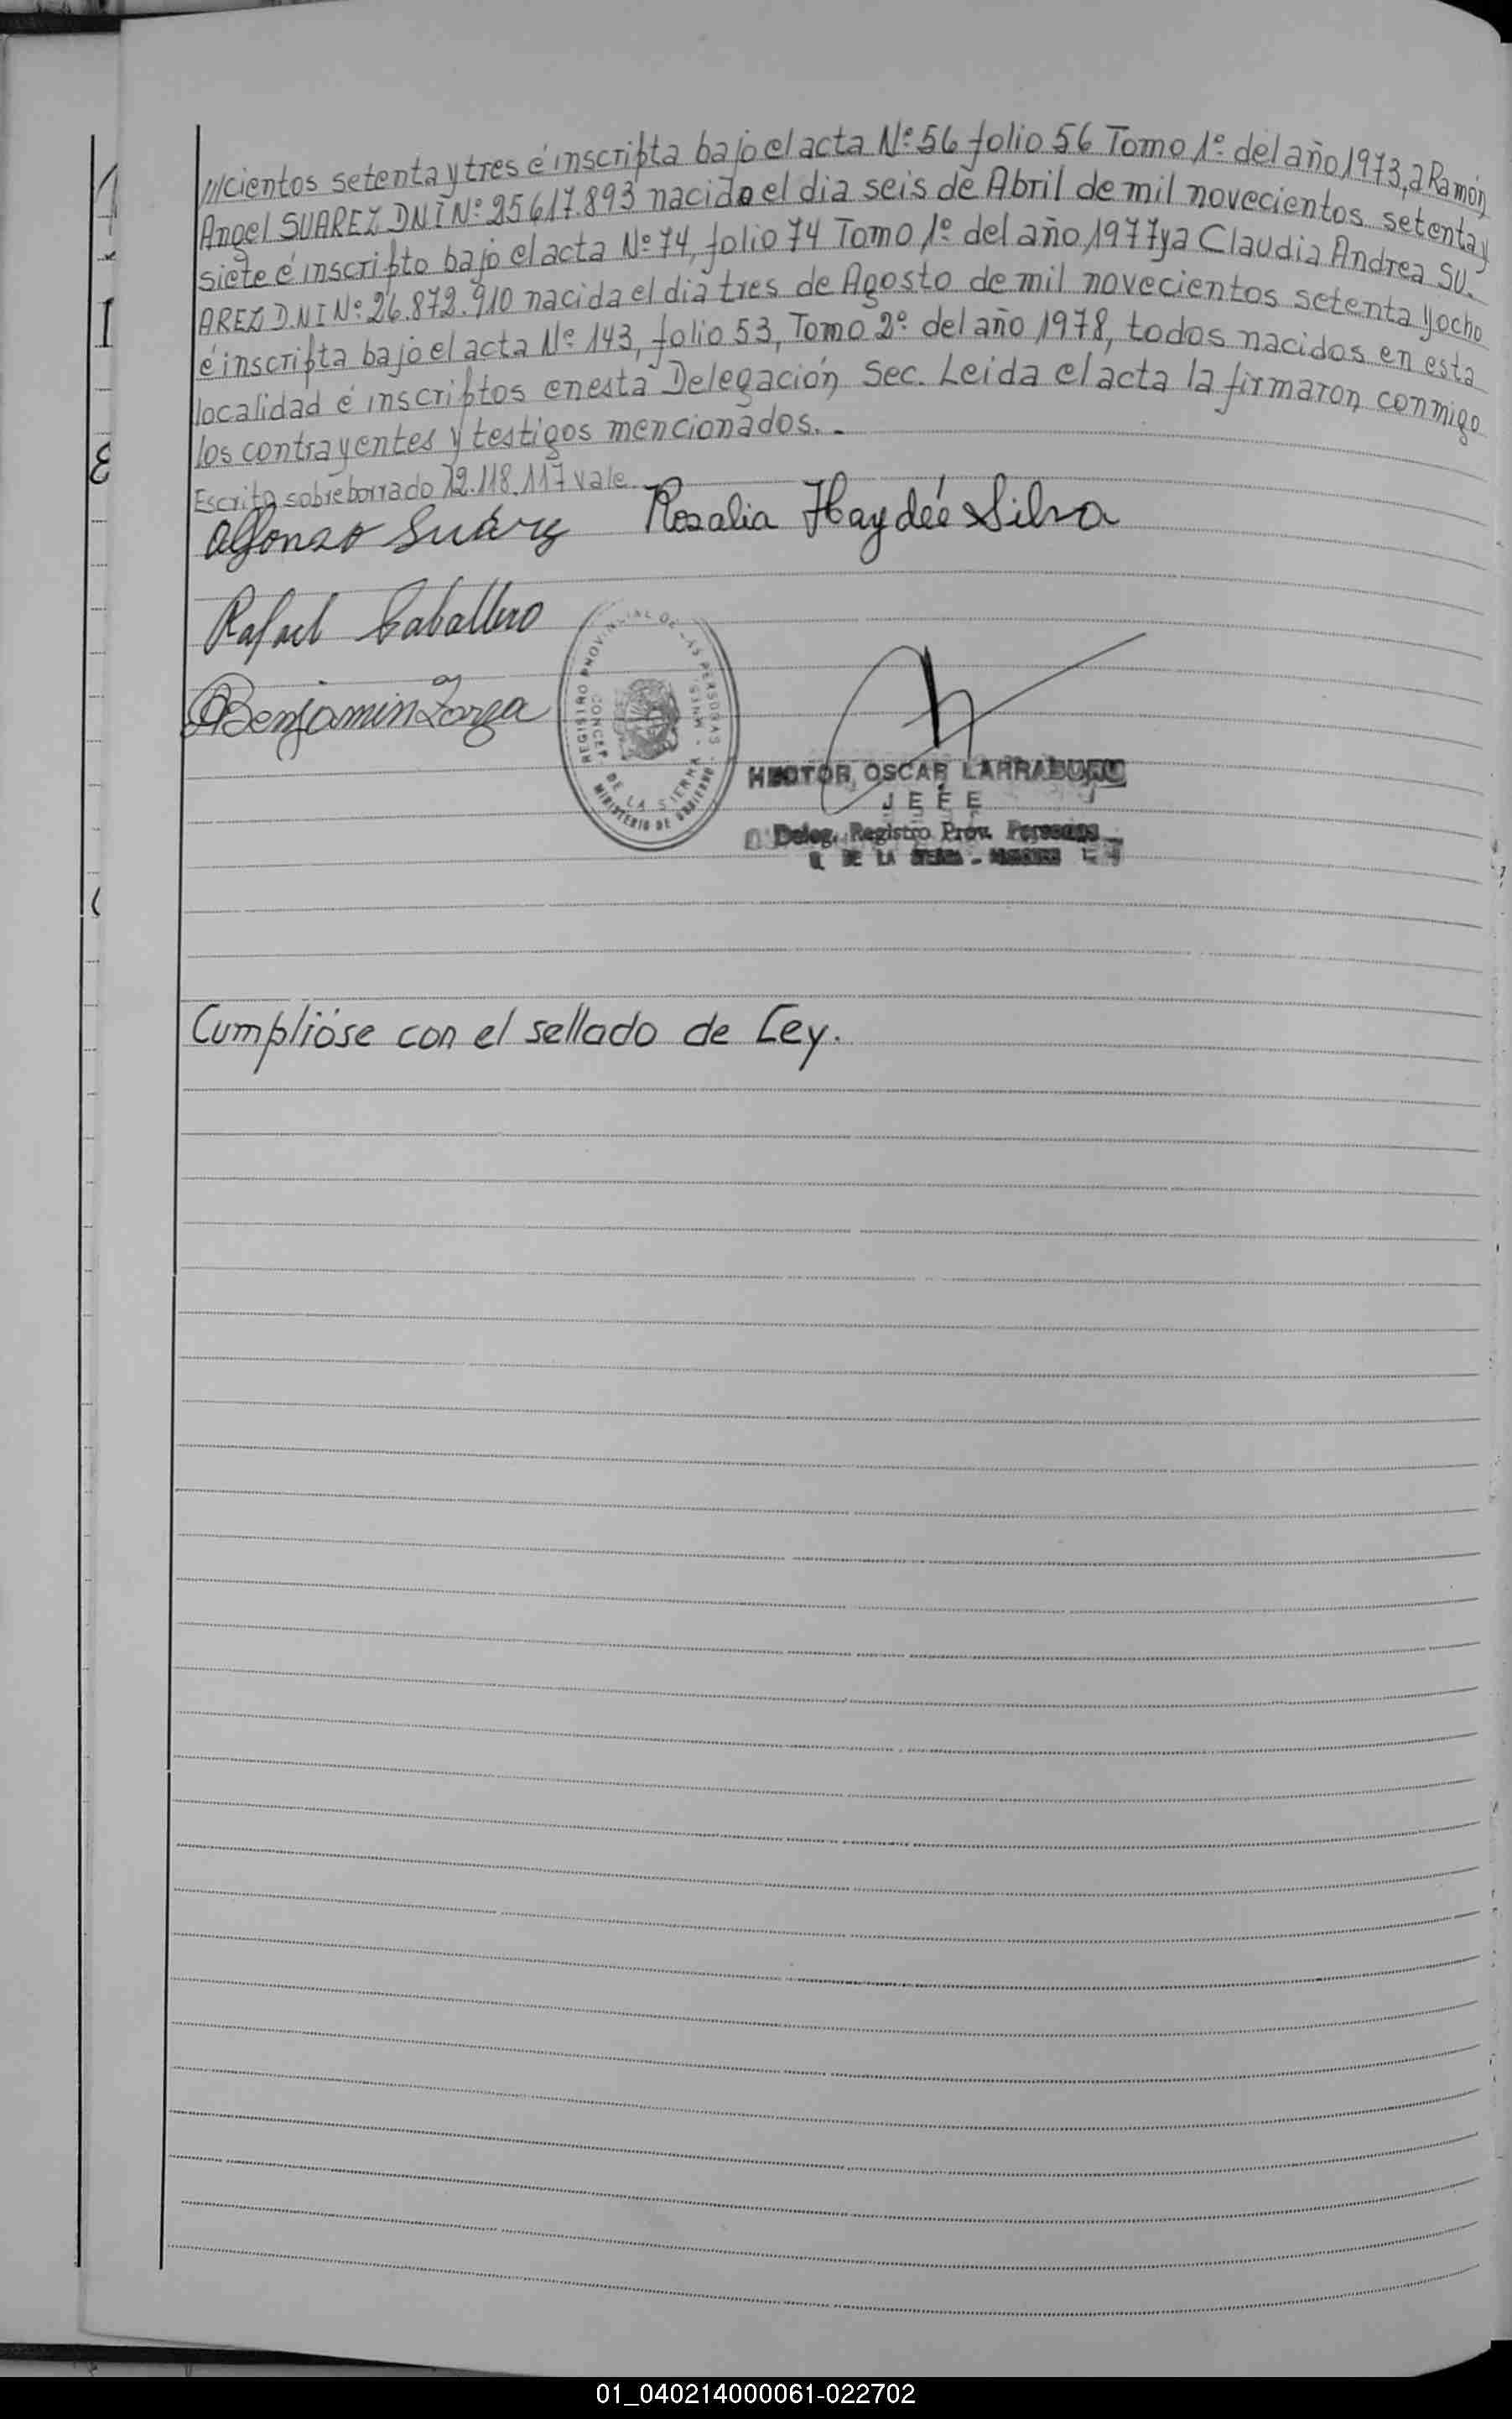 ///cientos setenta y tres é inscripta bajo el acta Nº 56 folio 56 Tomo 1º del año 1973, a Ramón
Angel SUAREZ DNI Nº 25.617.893 nacido el dia seis de Abril de mil novecientos setenta y
siete é inscripto bajo el acta Nº 74, folio 74 Tomo 1º del año 1977 y a Claudia Andrea SU-
AREZ D.N.I Nº 26.872.910 nacida el dia tres de Agosto de mil novecientos setenta y ocho
é inscripta bajo el acta Nº 143, folio 53, Tomo 2º del año 1978, todos nacidos en esta
localidad é inscriptos en esta Delegación Sec. Leida el acta la firmaron conmigo
los contrayentes y testigos mencionados. -
Escrito sobre borrado 12.118.117 vale.
Alfonso Suárez Rosalia Haydée Silva
Rafael Caballero
Benjamin Zorza
REGISTRO PROVINCIAL DE LAS PERSONAS
CONCEP. DE LA SIERRA - MNES.
MINISTERIO DE GOBIERNO
HECTOR OSCAR LARRABURU
JEFE
Deleg. Registro Prov. Personas
DE LA SIERRA - MISIONES
Cumplióse con el sellado de Ley.
01_040214000061-022702